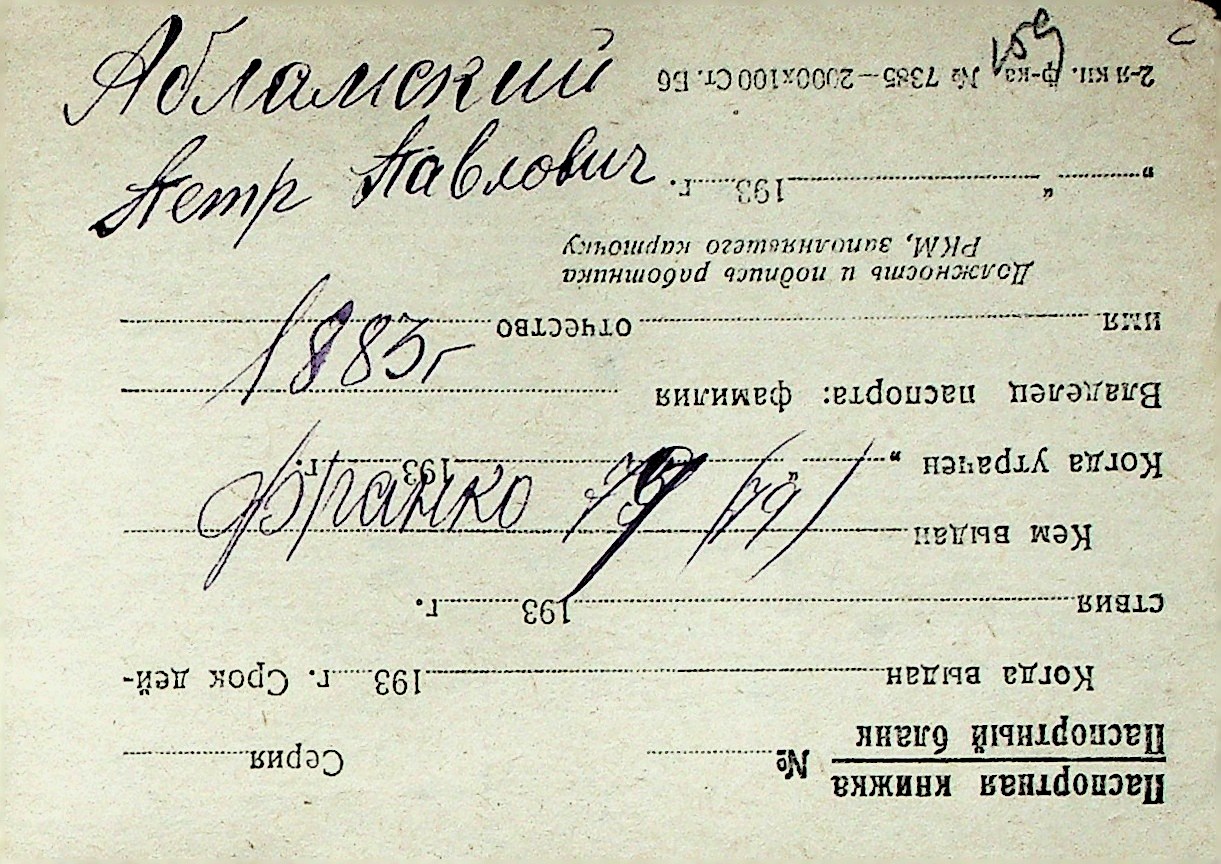 Абламский
Петр Павлович
1883 г
Франко 79 (79)
159
Паспортная книжка
Паспортный бланк
№ Серия
Когда выдан 193 г. Срок дей-
ствия 193 г.
Кем выдан
Когда утрачен „ “ 193 г.
Владелец паспорта: фамилия
имя отчество
Должность и подпись работника
РКМ, заполнявшего карточку
„ “ 193 г.
2-я кн. ф-ка № 7385—2000х100 Ст. Бб